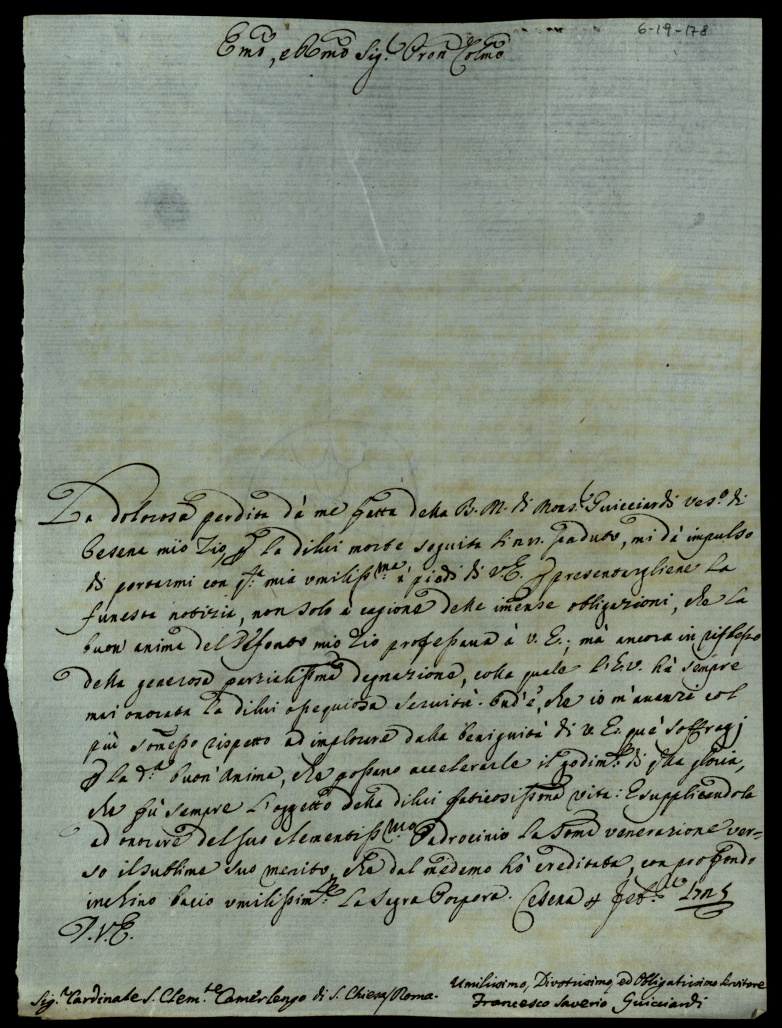 6-19-178
Emo, e Rmo Sig.r Pron Colmo
La dolorosa perdita dà me fatta della B. M. di Mons.r Guicciardi Vesc.o di
Cesena mio Zio, p la dilui morte seguita caduto, mi dà impulso
di portarmi con mia umiliss.ma a' piedi di V.E. p presentargliene la
funesta notizia, non solo a cagione delle imense obligazioni, che la
buon' anima del Defonto mio Zio professaua à V. E.; mà ancora in riflesso
della generosa parzialissima degnazione, colla quale l'E.V. hà sempre
mai onorata la dilui ossequiosa seruitù. Ond'è, che io m'auanzo col
più somesso rispetto ad implorare dalla benignità di V. E. que' soffragj
p la d.a buon' Anima, che possano accelerarle il godim.to di qlla gloria,
che fù sempre l'oggetto della dilui faticosissima vita: E supplicandola
ad onorare del suo clementiss.mo Padrocinio la soma venerazione ver=
so il sublime suo merito, che dal medemo hò ereditata, con profondo
inchino bacio umilissim.te la Sagra Porpora. Cesena 4 Feb.
D. V. E.
Umilissimo, Divotissimo, ed Obligatissimo Servitore
Sig.r Cardinale S. Clem.te Camerlengo di S. Chiesa / Roma.
Francesco Saverio Guicciardi